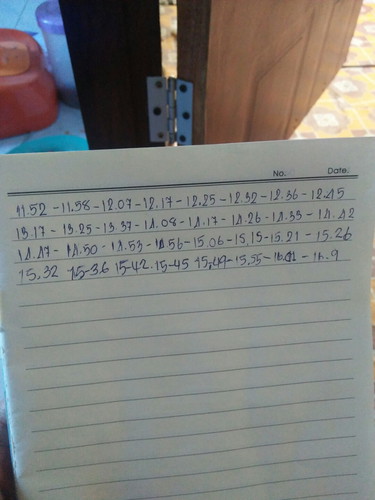 No. Date.
11.52 - 11.58 - 12.07 - 12.17 - 12.25 - 12.32 - 12.36 - 12.45
13.17 - 13.25 - 13.37 - 14.08 - 14.17 - 14.26 - 14.33 - 14.42
14.47 - 14.50 - 14.53 - 14.56 - 15.06 - 15.15 - 15.21 - 15.26
15.32 15-36 15-42. 15-45 15.49 - 15.55 -